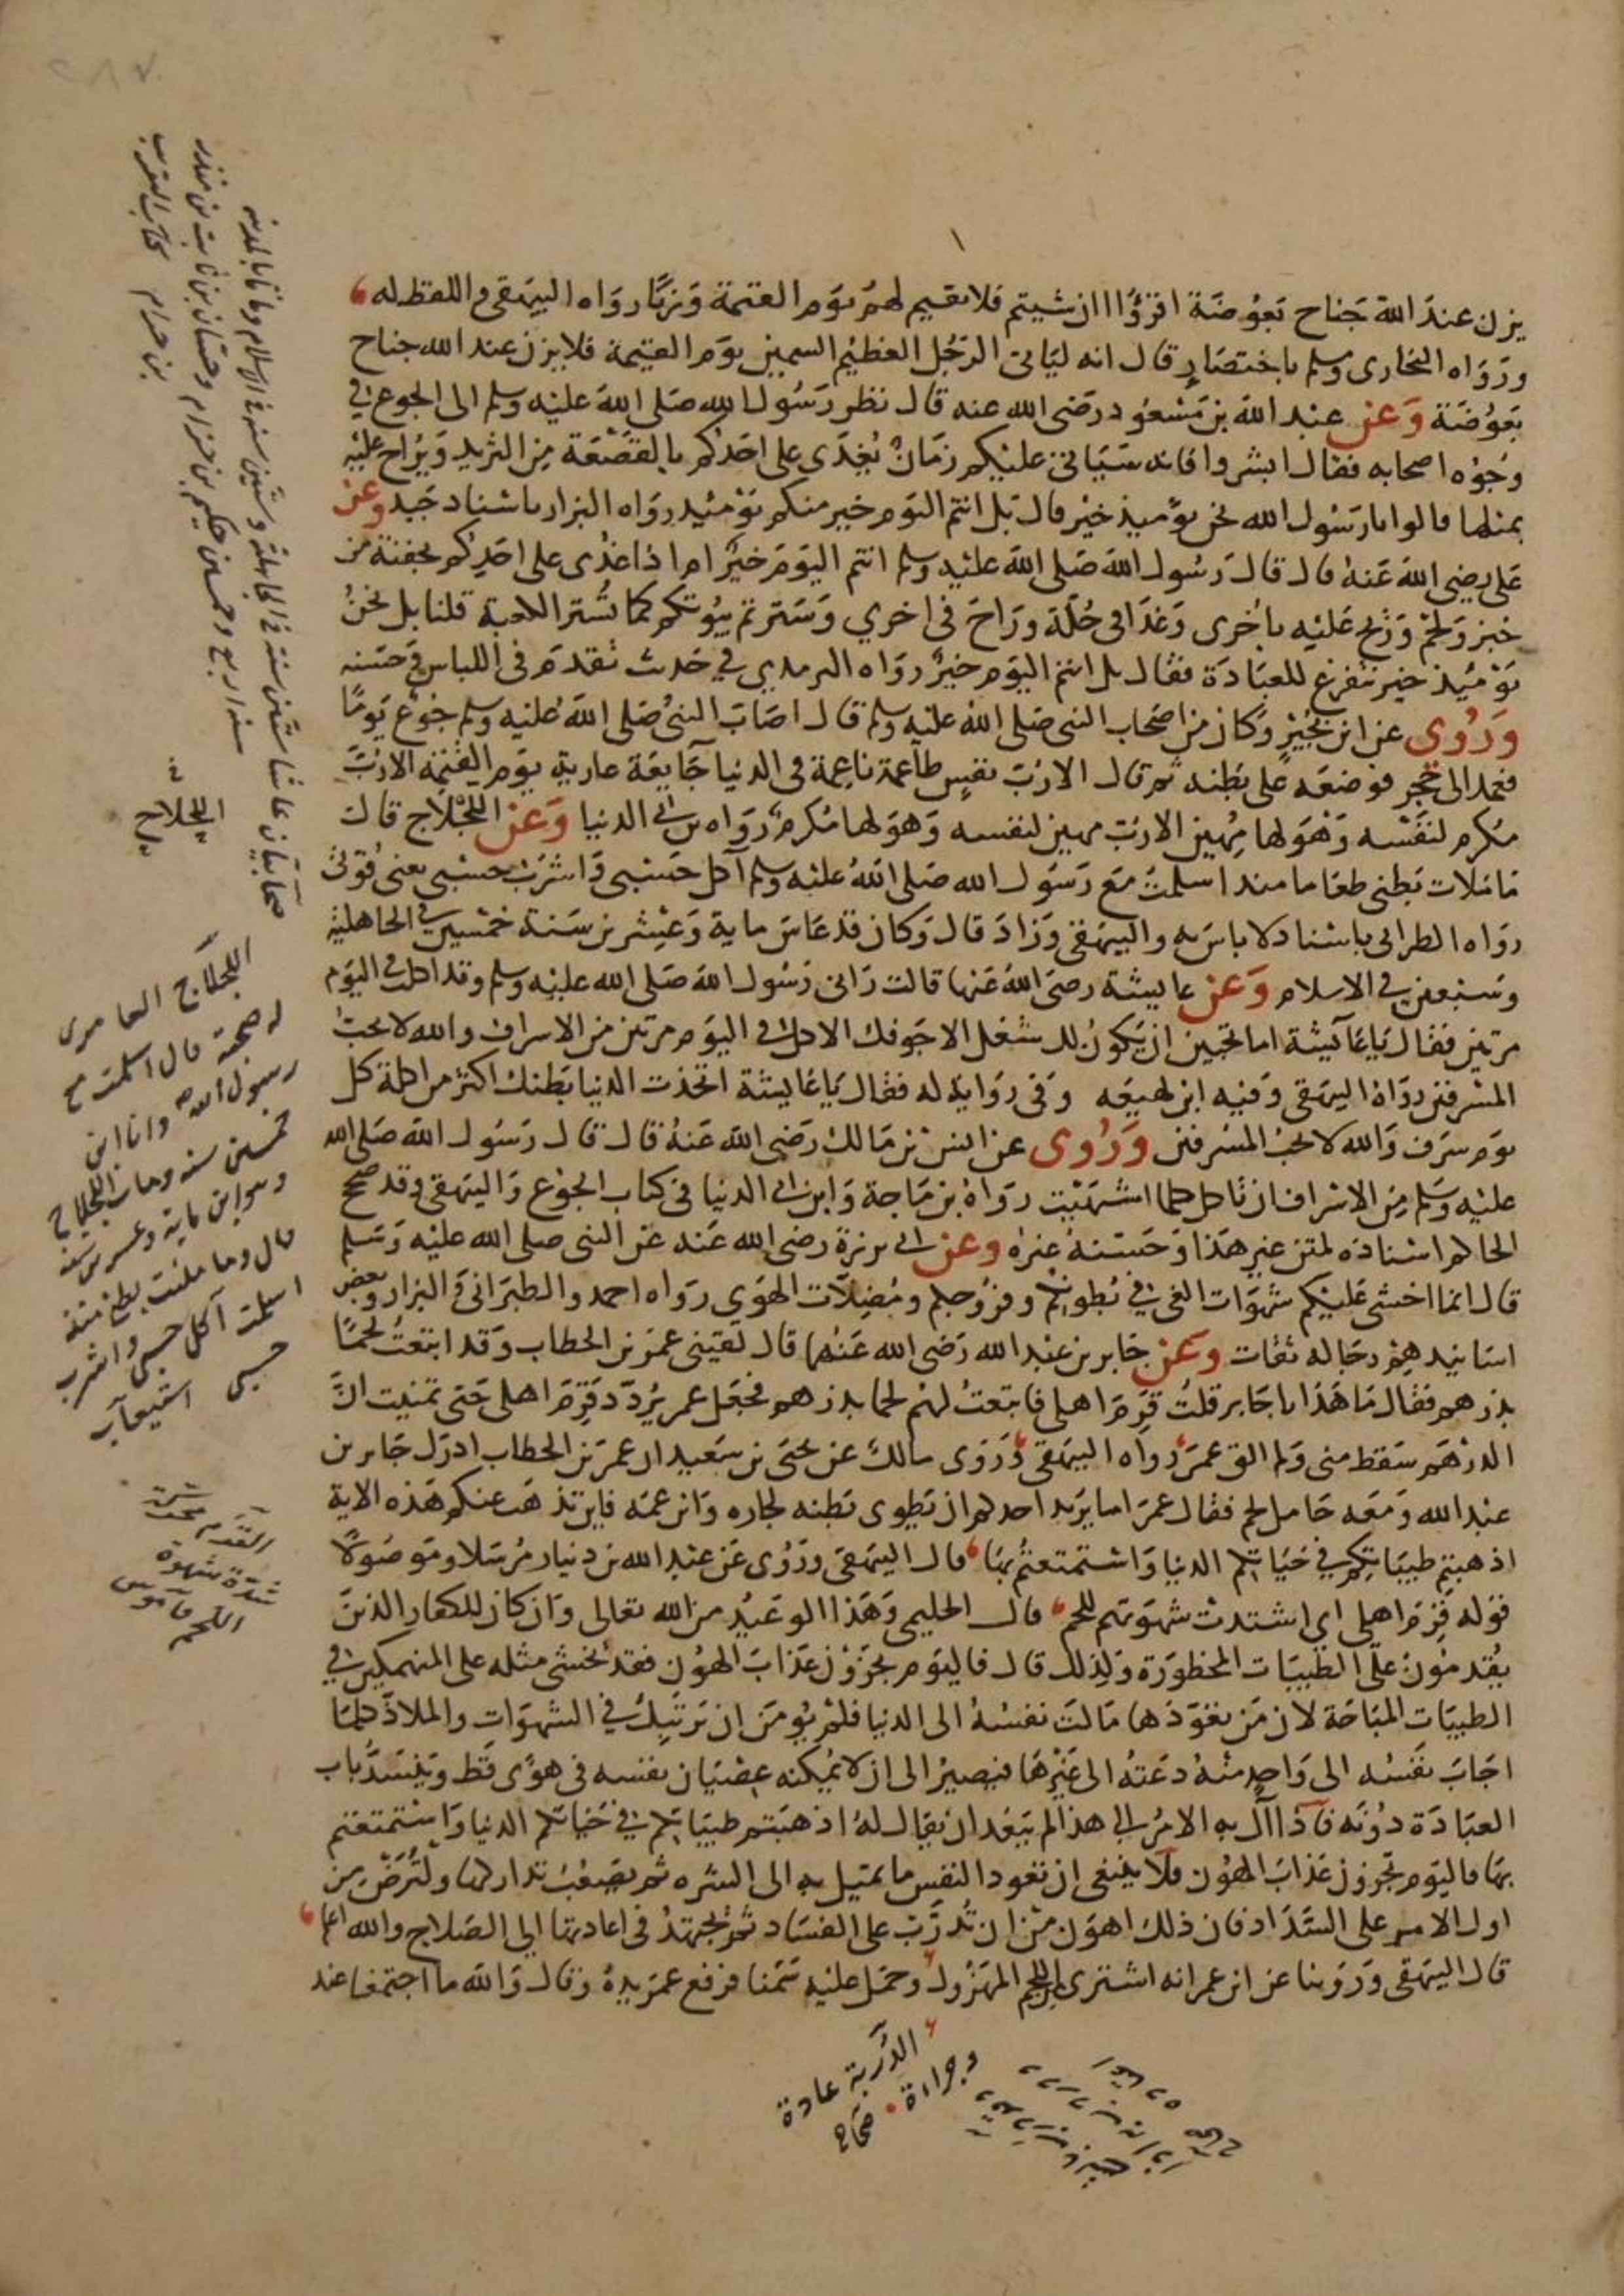 يزن عند الله جناح بعوضة اقرؤا ان شيتم فلا نقيم لهم يوم القيمة وزنا رواه البيهقى واللفظ له
ورواه البخارى ومسلم باختصار قال انه لياتى الرجل العظيم السمين يوم القيمة فلا يزن عند الله جناح
بعوضة وعن عبد الله بن مسعود رضى الله عنه قال نظر رسول الله صلى الله عليه وسلم الى الجوع فى
وجوه اصحابه فقال ابشروا فانه سياتى عليكم زمان يغدى على احدكم بالقصعة من الثريد ويراح عليه
بمثلها قالوا يا رسول الله نحن يوميذ خير قال بل انتم اليوم خير منكم يوميذ رواه البزار باسناد جيد وعن
على رضى الله عنه قال قال رسول الله صلى الله عليه وسلم انتم اليوم خير ام اذا غدى على احدكم بجفنة من
خبز ولحم وريح عليه باخرى وغدا فى حلة وراح فى اخري وسترتم بيوتكم كما تستر الكعبة قلنا بل نحن
يوميذ خير نتفرغ للعبادة فقال بل انتم اليوم خير رواه الترمدي في حديث تقدم فى اللباس وحسنه
وروى عن ابن بجير وكان من اصحاب النبى صلى الله عليه وسلم قال اصاب النبى صلى الله عليه وسلم جوع يوما
فعمد الى حجر فوضعه على بطنه ثم قال الا رب نفس طاعمة ناعمة فى الدنيا جايعة عارية يوم القيمة الا رب
مكرم لنفسه وهو لها مهين الا رب مهين لنفسه وهو لها مكرم رواه بن ابى الدنيا وعن اللجلاج قال
ما ملات بطنى طعاما منذ اسلمت مع رسول الله صلى الله عليه وسلم آكل حسبى واشرب حسبى يعنى قوتى
رواه الطبرانى باسناد لا باس به والبيهقى وزاد قال وكان قد عاش ماية وعشرين سنة خمسين فى الجاهلية
وسبعين فى الاسلام وعن عايشة رضى الله عنها قالت رانى رسول الله صلى الله عليه وسلم وقد اكلت فى اليوم
مرتين فقال يا عآيشة اما تحبين ان يكون لك شغل الا جوفك الاكل فى اليوم مرتين من الاسراف والله لا يحب
المسرفين رواه البيهقى وفيه ابن لهيعه وفى رواية له فقال يا عايشة اتخذت الدنيا بطنك اكثر من اكلة كل
يوم سرف والله لا يحب المسرفين وروى عن انس بن مالك رضى الله عنه قال قال رسول الله صلى الله
عليه وسلم من الاسراف ان تاكل كلما اشتهيت رواه بن ماجة وابن ابى الدنيا فى كتاب الجوع والبيهقى وقد صحح
الحاكم اسناده لمتن غير هذا وحسنه غيره وعن ابى برزة رضى الله عنه عن النبى صلى الله عليه وسلم
قال انما اخشى عليكم شهوات الغى في بطونكم وفروجكم ومضلات الهوي رواه احمد والطبرانى والبزار وبعض
اسانيدهم رجاله ثقات وعن جابر بن عبد الله رضى الله عنهما قال لقينى عمر بن الخطاب وقد ابتعت لحما
بدرهم فقال ما هذا يا جابر قلت قرم اهلى فابتعت لهم لحما بدرهم فجعل عمر يردد قرم اهلى حتى تمنيت ان
الدرهم سقط منى ولم الق عمر رواه البيهقى وروى مالك عن يحيى بن سعيد ان عمر بن الخطاب ادرك جابر بن
عبد الله ومعه حامل لحم فقال عمر اما يريد احدكم ان يطوى بطنه لجاره وابن عمه فاين تذهب عنكم هذه الاية
اذهبتم طيباتكم في حياتكم الدنيا واستمتعتم بها قال البيهقى وروى عن عبد الله بن دينار مرسلا وموصولا
قوله قرم اهلي اي اشتدت شهوتهم للحم قال الحليمى وهذا الوعيد من الله تعالى وان كان للكفار الذين
يقدمون على الطيبات المحظورة ولذلك قال فاليوم تجزون عذاب الهون فقد يخشى مثله على المنهمكين فى
الطيبات المباحة لان من تعودها مالت نفسه الى الدنيا فلم يومن ان يرتبك في الشهوات والملاذ كلما
اجاب نفسه الى واحد منه دعته الى غيرها فيصير الى ان لا يمكنه عصيان نفسه فى هوى قط وينسد باب
العبادة دونه فاذا آل به الامر الى هذا لم يبعد ان يقال له اذهبتم طيباتكم في حياتكم الدنيا واستمتعتم
بها فاليوم تجزون عذاب الهون فلا ينبغى ان تعود النفس ما تميل به الى الشره ثم يصعب تداركها ولترض من
اول الامر على السداد فان ذلك اهون من ان تدرب على الفساد ثم يجتهد فى اعادتها الى الصلاح والله اعلم
قال البيهقى وروينا عن ابن عمر انه اشترى اللحم المهزول وحمل عليه سمنا فرفع عمر يده وقال والله ما اجتمعا عند
صحابيان عاشا ستين سنة في الجاهلية وستين سنة في الاسلام وماتا بالمدينة
سنة اربع وخمسين حكيم بن حزام وحسان بن ثابت بن منذر
بن حرام
اللجلاج
اللجلاج العامرى
له صحبة قال اسلمت مع
رسول الله وانا ابن
خمسين سنه ومات اللجلاج
وهو ابن ماية وعسرين سنه
قال وما ملئت بطنى منذ
اسلمت آكل حسبى واشرب
حسبى استيعاب
القرم محركة
شدة شهوة
اللحم قاموس
الدربة عادة
وجراءة صحاح